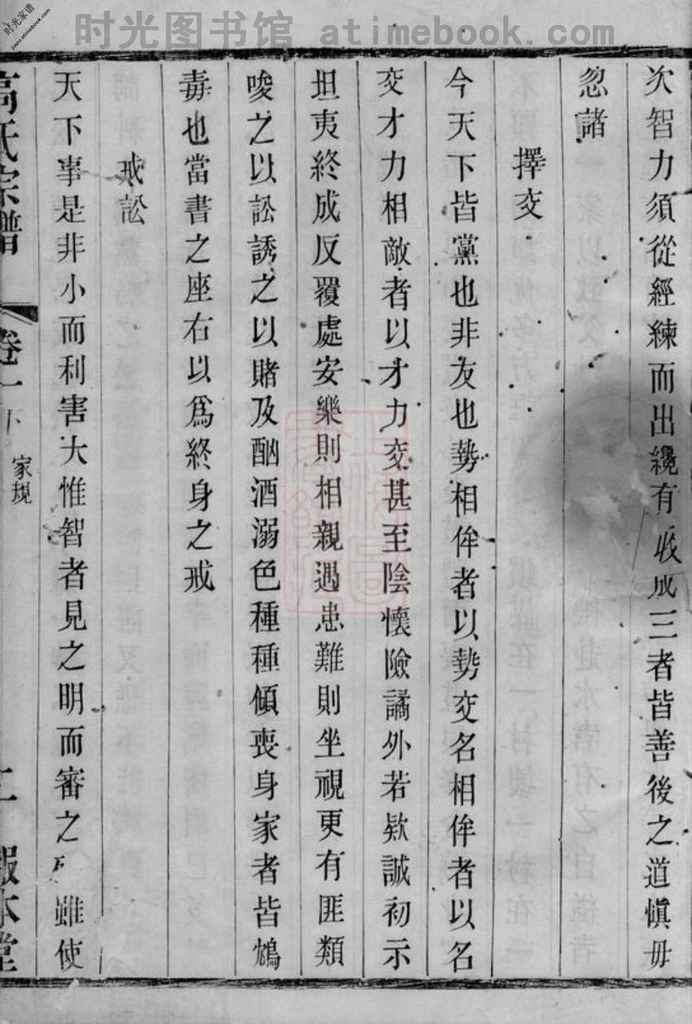 时光图书馆 atimebook.com
时光家谱
www.atimebook.com
次智力須從經練而出纔有收成三者皆善後之道愼毋
忽諸
擇交
今天下皆黨也非友也勢相侔者以勢交名相侔者以名
交才力相敵者以才力交甚至陰懷險譎外若欵誠初示
坦夷終成反覆處安樂則相親遇患難則坐視更有匪類
唆之以訟誘之以賭及酗酒溺色種種傾喪身家者皆鴆
毒也當書之座右以爲終身之戒
戒訟
天下事是非小而利害大惟智者見之明而審之 雖使
高氏宗譜 卷一下 家規 二 報本堂